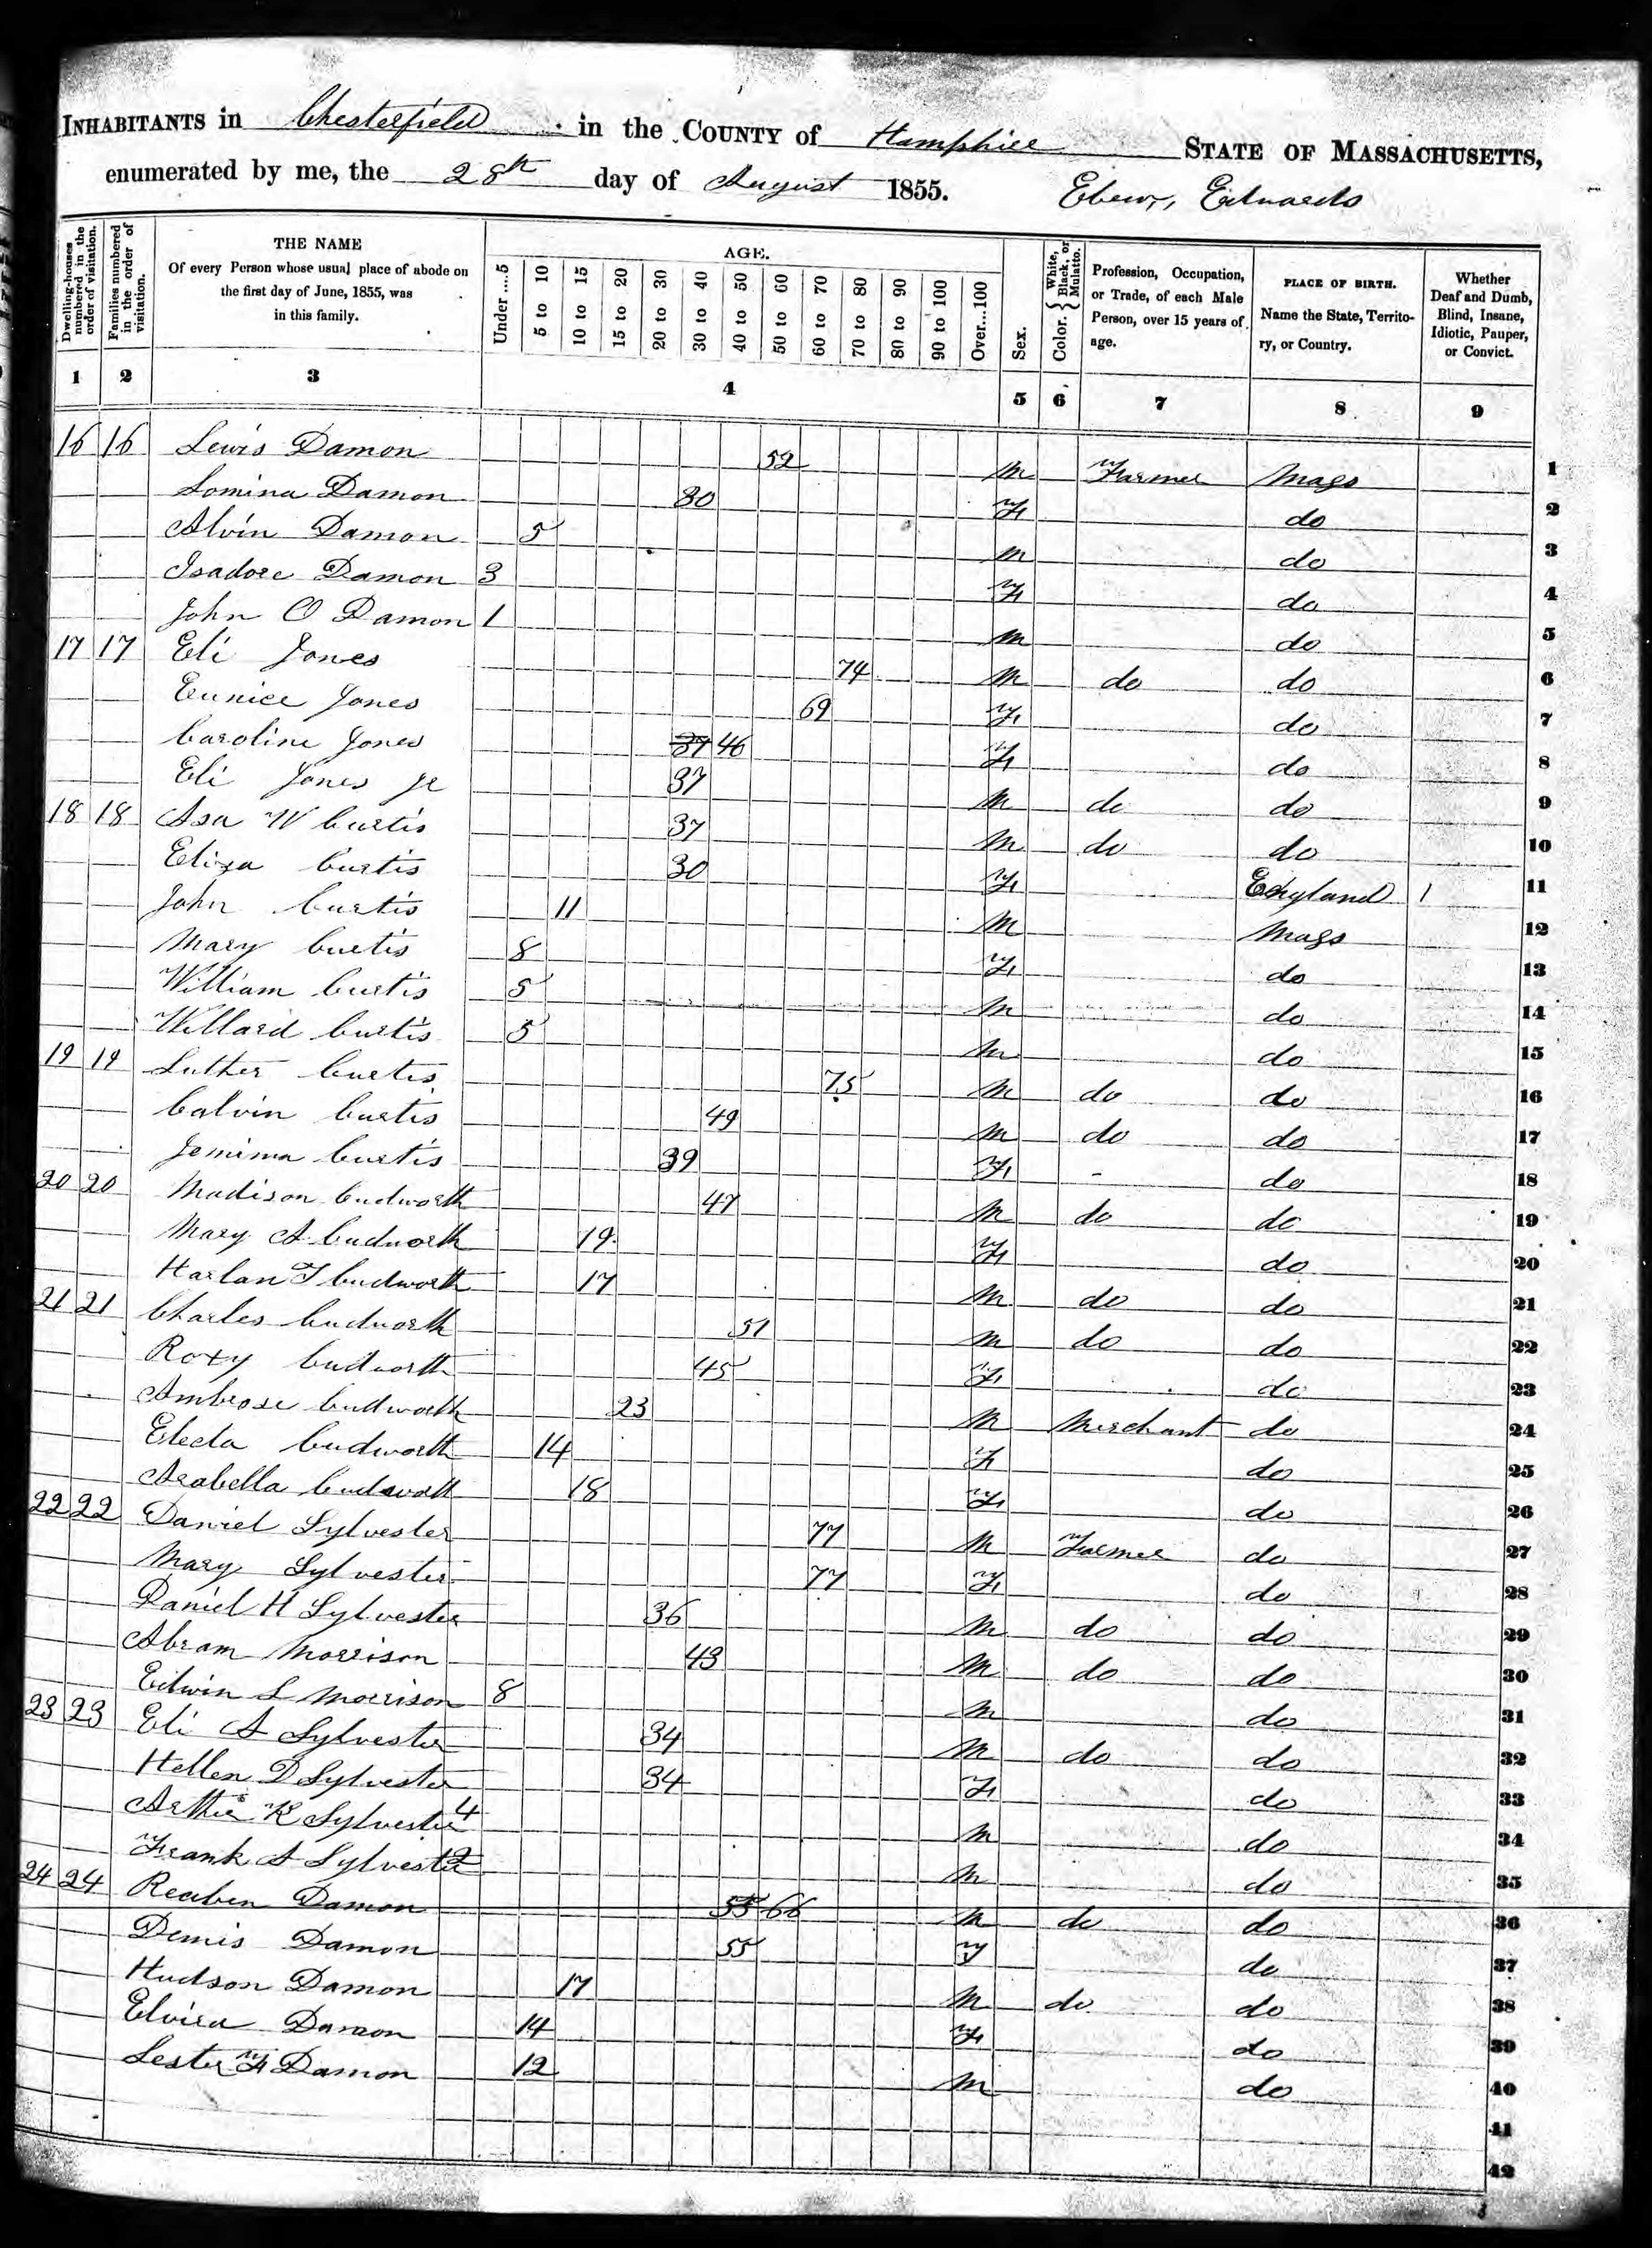 INHABITANTS in Chesterfield in the COUNTY of Hampshire STATE OF MASSACHUSETTS,
enumerated by me, the 28th day of August 1855. Ebenr, Edwards
Dwelling-houses numbered in the order of visitation. Families numbered in the order of visitation. THE NAME Of every Person whose usual place of abode on the first day of June, 1855, was in this family. AGE. Under....5 5 to 10 10 to 15 15 to 20 20 to 30 30 to 40 40 to 50 50 to 60 60 to 70 70 to 80 80 to 90 90 to 100 Over...100 Sex. Color. { White, Black, or Mulatto. Profession, Occupation, or Trade, of each Male Person, over 15 years of age. PLACE OF BIRTH. Name the State, Territory, or Country. Whether Deaf and Dumb, Blind, Insane, Idiotic, Pauper, or Convict.
1 2 3 4 5 6 7 8 9
16 16 Lewis Damon 52 M Farmer Mass 1
Lomina Damon 30 F do 2
Alvin Damon 5 M do 3
Isadore Damon 3 F do 4
John O Damon 1 M do 5
17 17 Eli Jones 74 M do do 6
Eunice Jones 69 F do 7
Caroline Jones 37 46 F do 8
Eli Jones Jr 37 M do do 9
18 18 Asa W Curtis 37 M do do 10
Eliza Curtis 30 F England 1 11
John Curtis 11 M Mass 12
Mary Curtis 8 F do 13
William Curtis 5 M do 14
Willard Curtis 5 M do 15
19 19 Luther Curtis 75 M do do 16
Calvin Curtis 49 M do do 17
Jemima Curtis 39 F - do 18
20 20 Madison Cudworth 47 M do do 19
Mary A Cudworth 19 F do 20
Harlan T Cudworth 17 M do do 21
21 21 Charles Cudworth 51 M do do 22
Roxy Cudworth 45 F do 23
Ambrose Cudworth 23 M Merchant do 24
Electa Cudworth 14 F do 25
Arabella Cudworth 18 F do 26
22 22 Daniel Sylvester 77 M Farmer do 27
Mary Sylvester 77 F do 28
Daniel H Sylvester 36 M do do 29
Abram Morrison 43 M do do 30
Edwin L Morrison 8 M do 31
23 23 Eli A Sylvester 34 M do do 32
Hellen D Sylvester 34 F do 33
Arthur K Sylvester 4 M do 34
Frank A Sylvester 2 M do 35
24 24 Reuben Damon 55 66 M do do 36
Demis Damon 55 F do 37
Hudson Damon 17 M do do 38
Elvira Damon 14 F do 39
Lester F Damon 12 M do 40
41
42